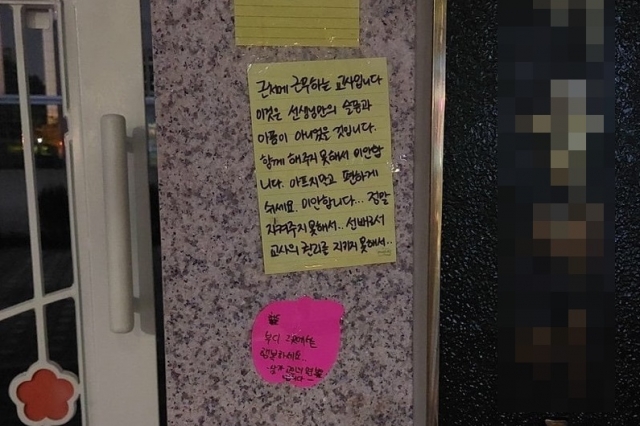 근처에 근무하는 교사입니다
이것은 선생님만의 슬픔과
아픔이 아니었을 것입니다.
함께 해주지 못해서 미안합
니다. 아프지말고 편하게
쉬세요. 미안합니다... 정말
지켜주지 못해서.. 선배로서
교사의 권리를 지키지 못해서..
부디 그곳에서는
행복하세요..